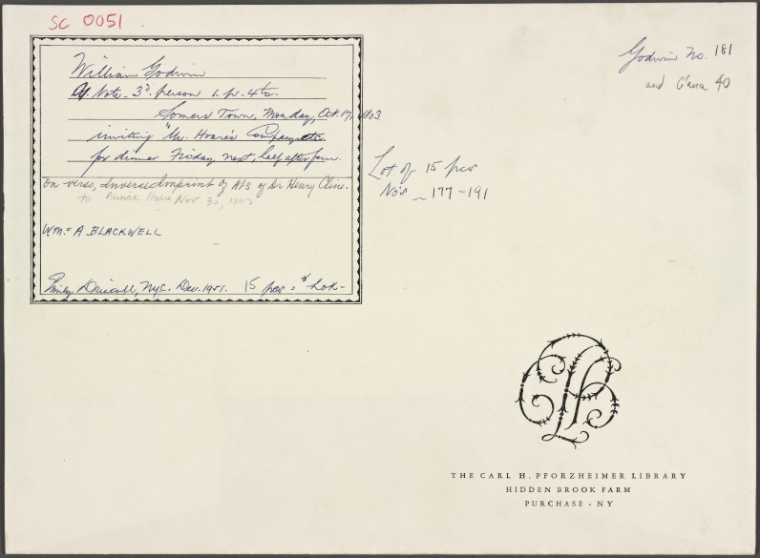 SC 0051.
William Godwin
A. Note. 3d. person 1 p. 4to.
Somers Town, Monday, Oct. 17, 1803
inviting "Mr. Hoare's Company" etc.
for dinner Friday next, half after four.
On verso, Inversed Imprint of ALS of Dr Henry Cline.
to Prince Hoare Nov 30, 1803
WM: A BLACKWELL
Emily Driscoll, NYC. Dec. 1951. 15 pcs =
Godwin No. 181
and G'ana 40
Lot of 15 pcs
No's 177-191
THE CARL H. PFORZHEIMER LIBRARY
HIDDEN BROOK FARM
PURCHASE · NY